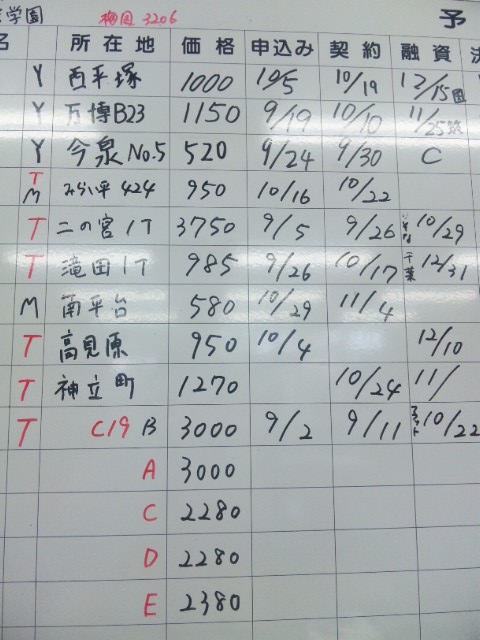 学園 梅園 3206 予
名 所在地 価格 申込み 契約 融資
Y 西平塚 1000 10/5 10/19 12/15
Y 万博B23 1150 9/19 10/10 11/25
Y 今泉No.5 520 9/24 9/30 C
T M みらい平424 950 10/16 10/22
T 二の宮1T 3750 9/5 9/26 10/29
T 滝田1T 985 9/26 10/17 千葉 12/31
M 南平台 580 10/29 11/4
T 高見原 950 10/4 12/10
T 神立町 1270 10/24 11/
T C19 B 3000 9/2 9/11 10/22
A 3000
C 2280
D 2280
E 2380